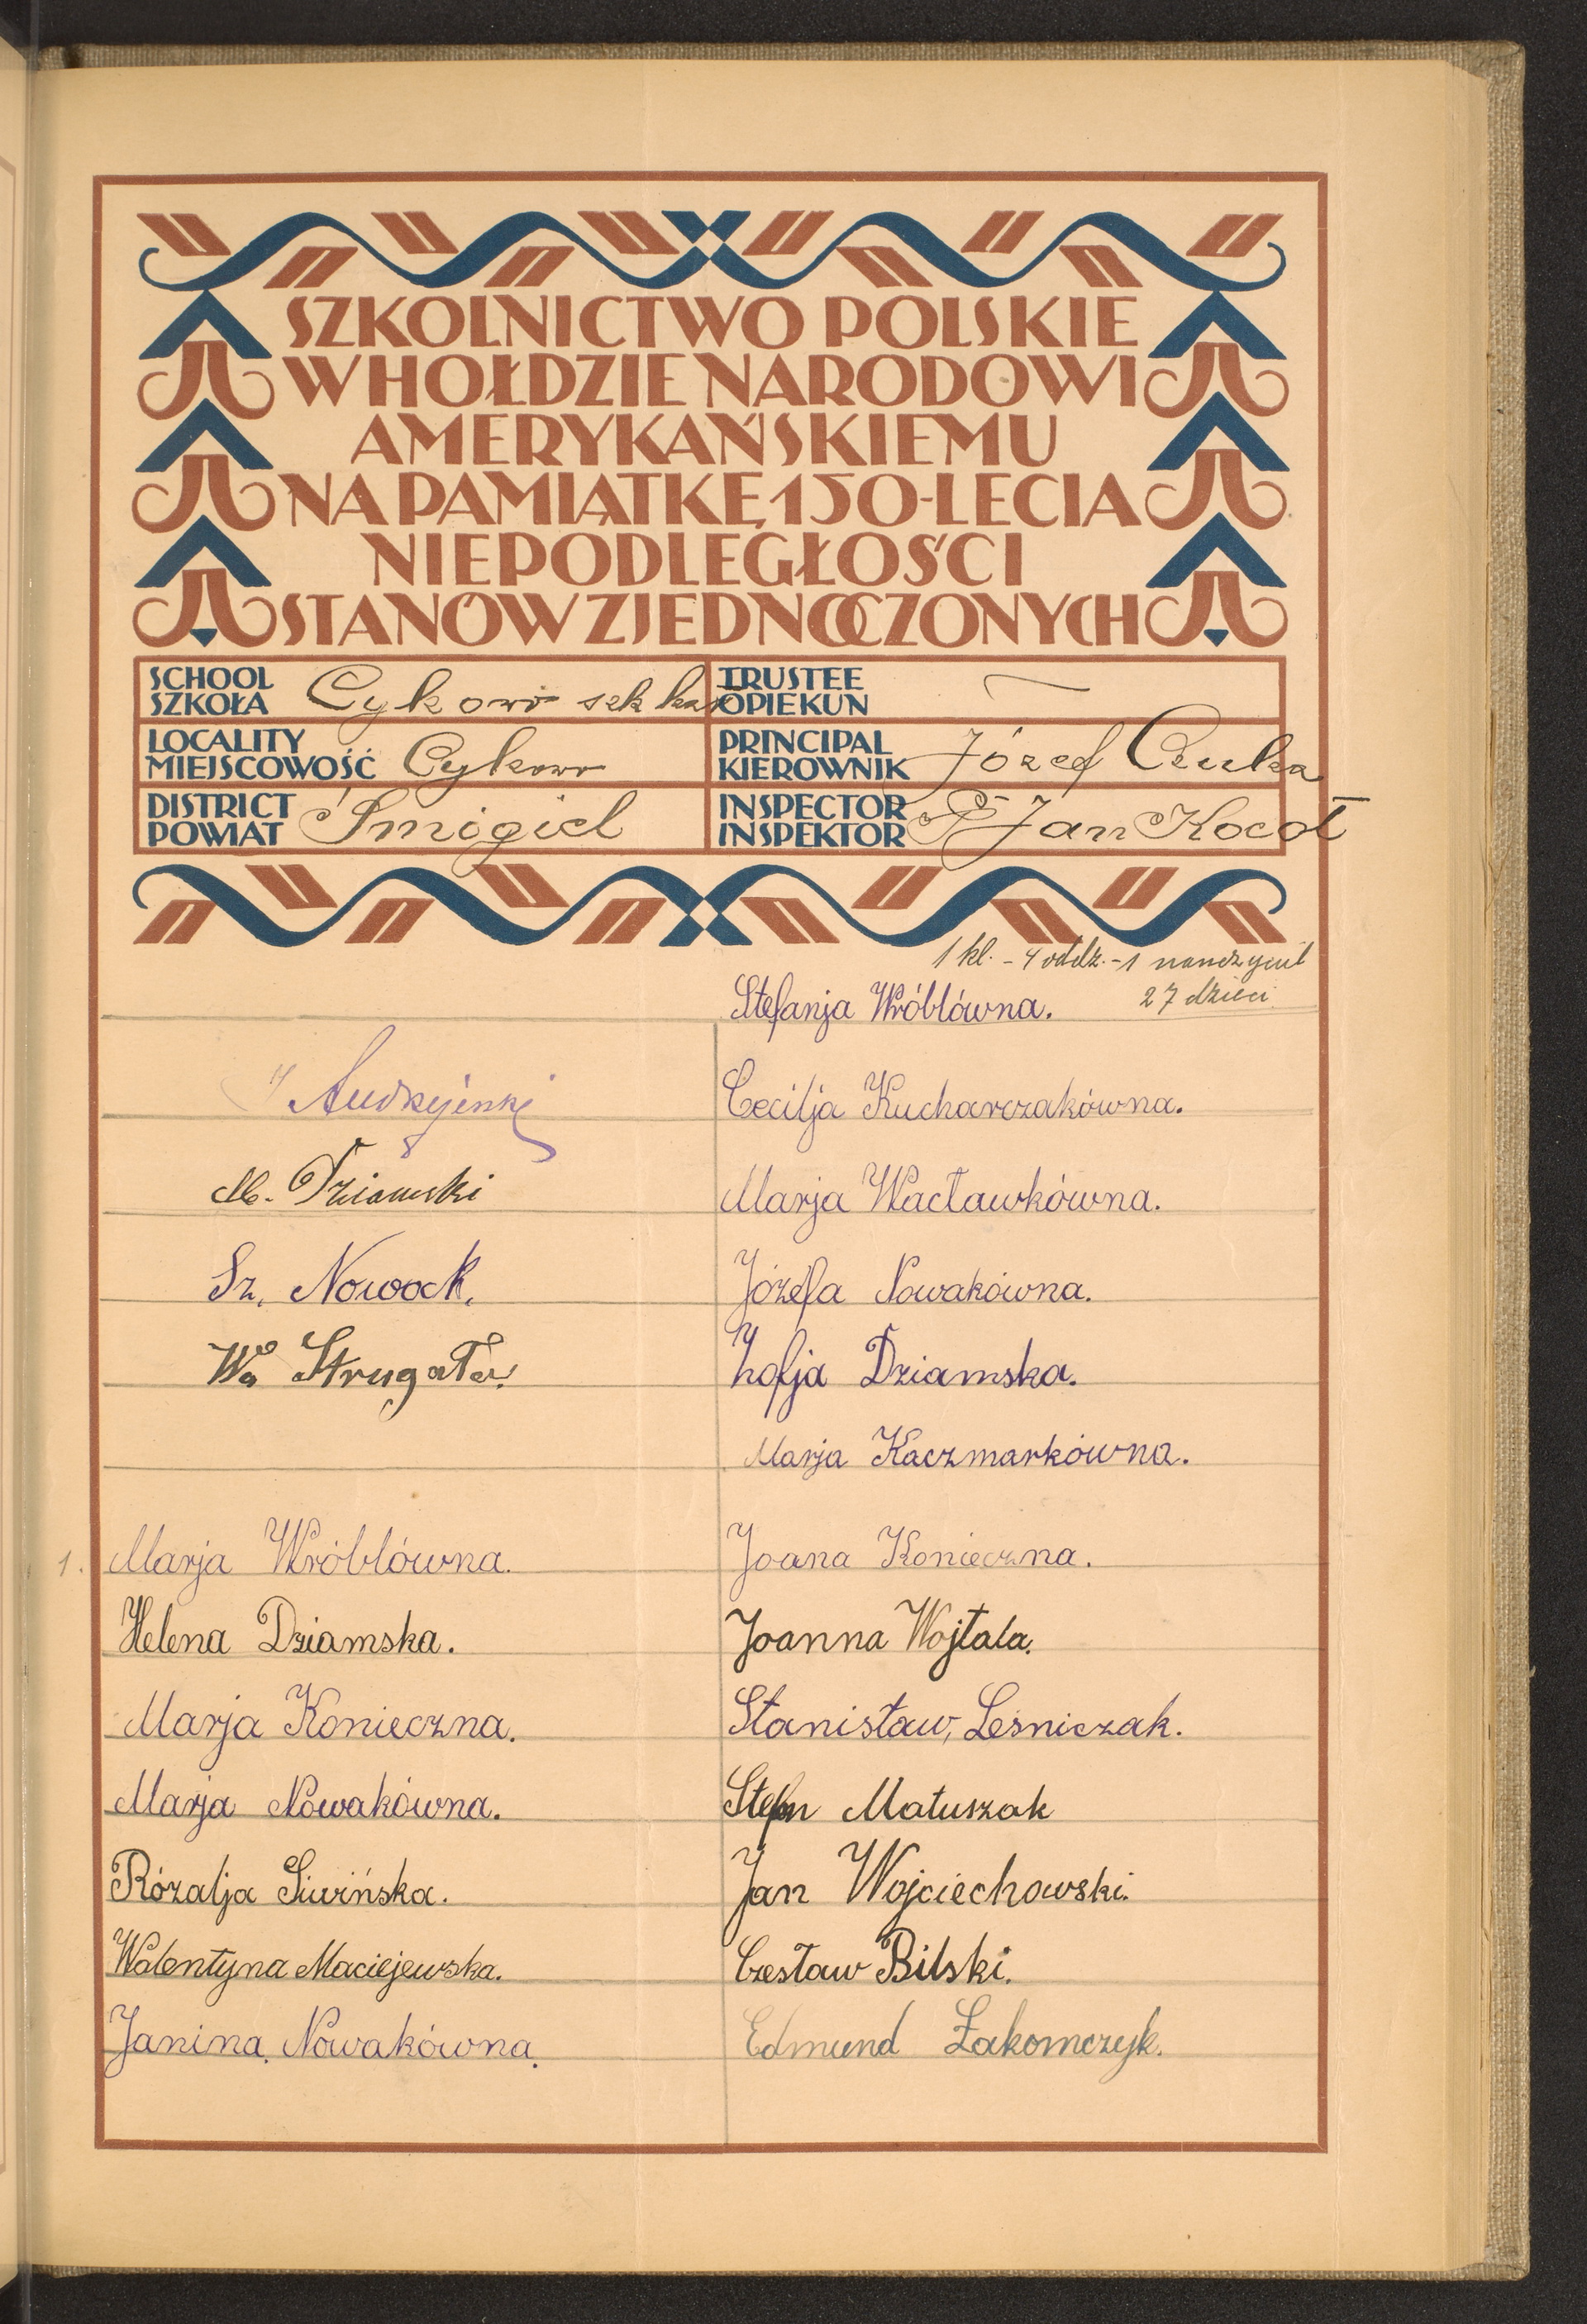 SZKOLNICTWO POLSKIE
W HOŁDZIE NARODOWI
AMERYKAŃSKIEMU
NA PAMIĄTKĘ 150-LECIA
NIEPODLEGŁOŚCI
STANÓW ZJEDNOCZONYCH
SCHOOL
SZKOŁA Cykowo szk kat
TRUSTEE
OPIEKUN —
LOCALITY
MIEJSCOWOŚĆ Cykowo
PRINCIPAL
KIEROWNIK Józef Czuka
DISTRICT
POWIAT Śmigiel
INSPECTOR
INSPEKTOR Jan Kocoł
1 kl. - 4 oddz. - 1 nauczyciel
27 dzieci
M. Dziamski
Sz. Nowack.
W. Strugała.
1. Marja Wróblówna.
Helena Dziamska.
Marja Konieczna.
Marja Nowakówna.
Rózalja Siwińska.
Walentyna Maciejewska.
Janina Nowakówna.
Stefanja Wróblówna.
Cecilja Kucharczakówna.
Marja Wacławkówna.
Józefa Nowakówna.
Zofja Dziamska.
Marja Kaczmarkówna.
Joana Konieczna.
Joanna Wojtala.
Stanisław, Leśniczak.
Stefan Matuszak
Jan Wojciechowski.
Czesław Bilski.
Edmund Łakomczyk.